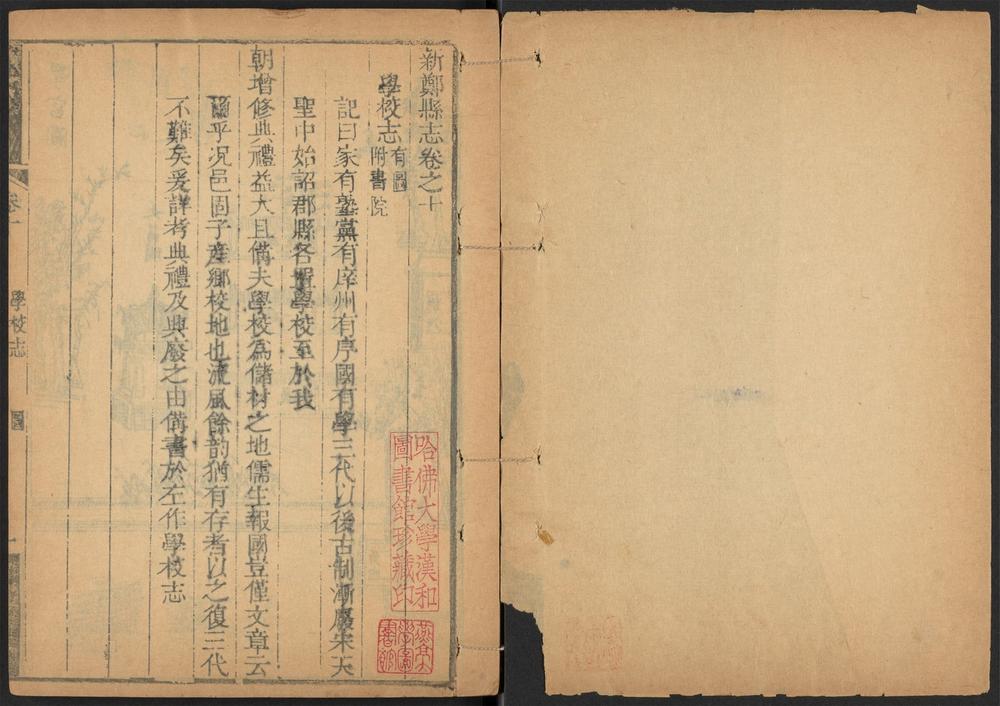 新鄭縣志卷之十
學校志 有圖 附書院
記曰家有塾黨有庠州有序國有學三代以後古制漸廢宋天
聖中始詔郡縣各置學校至於我
朝增修典禮益大且備夫學校為儲材之地儒生報國豈僅文章云
爾乎况邑固子產鄉校地也流風餘韵猶有存者以之復三代
不難矣爰詳考典禮及興廢之由備書於左作學校志
學校志
圖
一
哈佛大學漢和
圖書館珍藏印